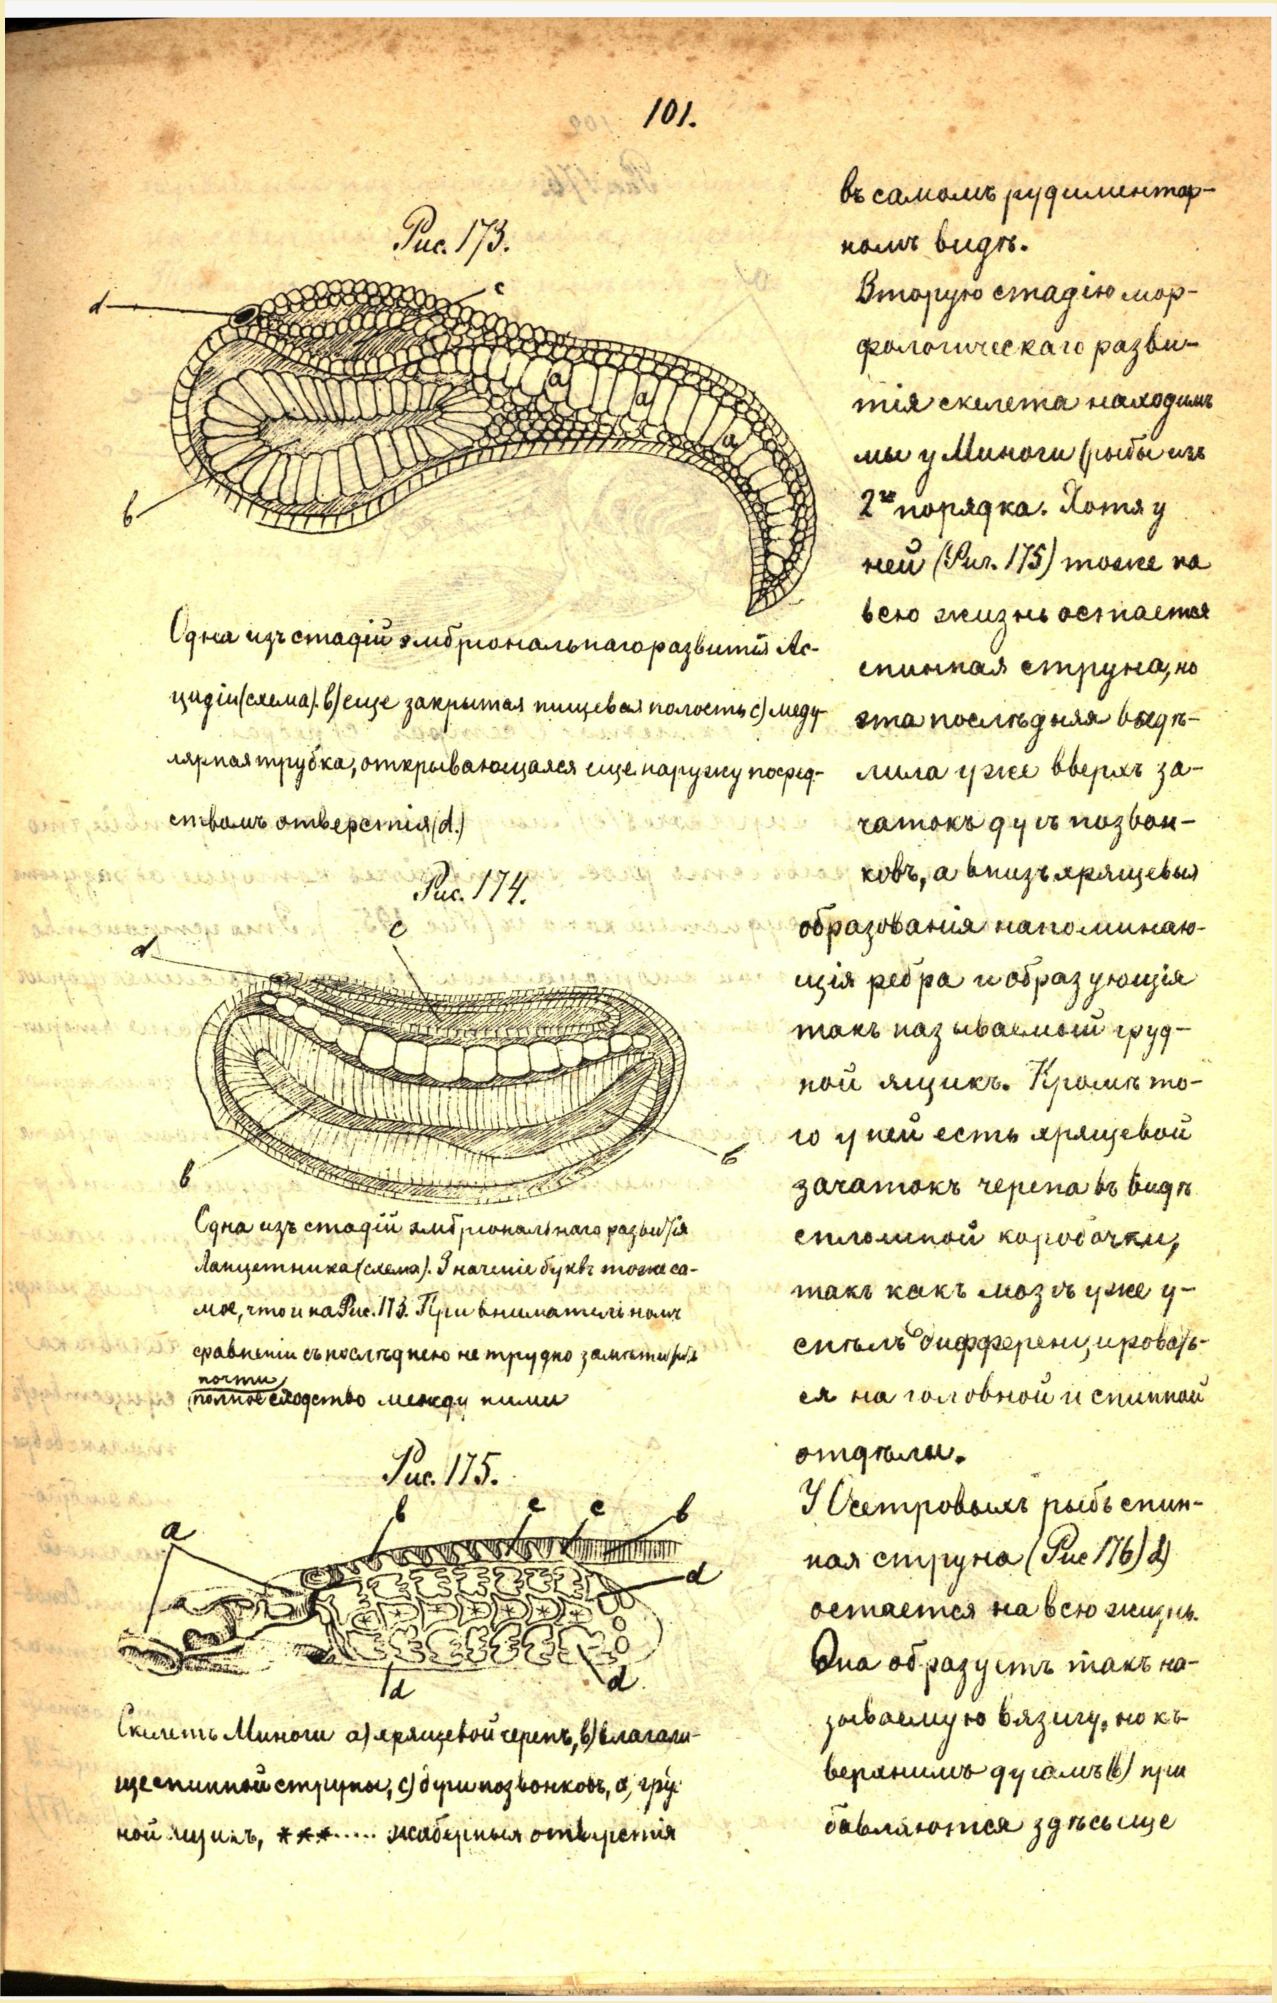 101.
Рис. 173.
d
c
a
a
a
b
Одна изъ стадій эмбріональнаго развитія Ас-
цидіи (схема). b) еще закрытая пищевая полость c) меду-
лярная трубка, открывающаяся еще наружу посред-
ствомъ отверстія (d.)
Рис. 174.
c
d
b
b
Одна изъ стадій эмбріональнаго развитія
Ланцетника (схема). Значеніе буквъ тоже са-
мое, что и на Рис. 173. При внимательномъ
сравненіи съ послѣднею не трудно замѣтить
почти
полное сходство между ними
Рис. 175.
a
b
c
c
b
d
d
d
Скелетъ Миноги a) хрящевой черепъ, b) влагали-
ще спинной струны, c) дуги позвонковъ, d) груд
ной ящикъ, ***..... жаберныя отверстія
въ самомъ рудиментар-
номъ видѣ.
Вторую стадію мор-
фологическаго разви-
тія скелета находимъ
мы у Миноги (рыбы изъ
2го порядка. Хотя у
ней (Рис. 175) тоже на
всю жизнь остается
спинная струна, но
эта послѣдняя выдѣ-
лила уже вверхъ за-
чатокъ дугъ позвон-
ковъ, а внизъ хрящевыя
образованія напоминаю-
щія ребра и образующія
такъ называемый груд-
ной ящикъ. Кромѣ то-
го у ней есть хрящевой
зачатокъ черепа въ видѣ
сплошной коробочки,
такъ какъ мозгъ уже у-
спѣлъ дифференцировать-
ся на головной и спинной
отдѣлы.
У Осетровыхъ рыбъ спин-
ная струна (Рис 176) d)
остается на всю жизнь.
Она образуетъ такъ на-
зываемую вязигу, но къ
верхнимъ дугамъ (b) при
бавляются здѣсь еще